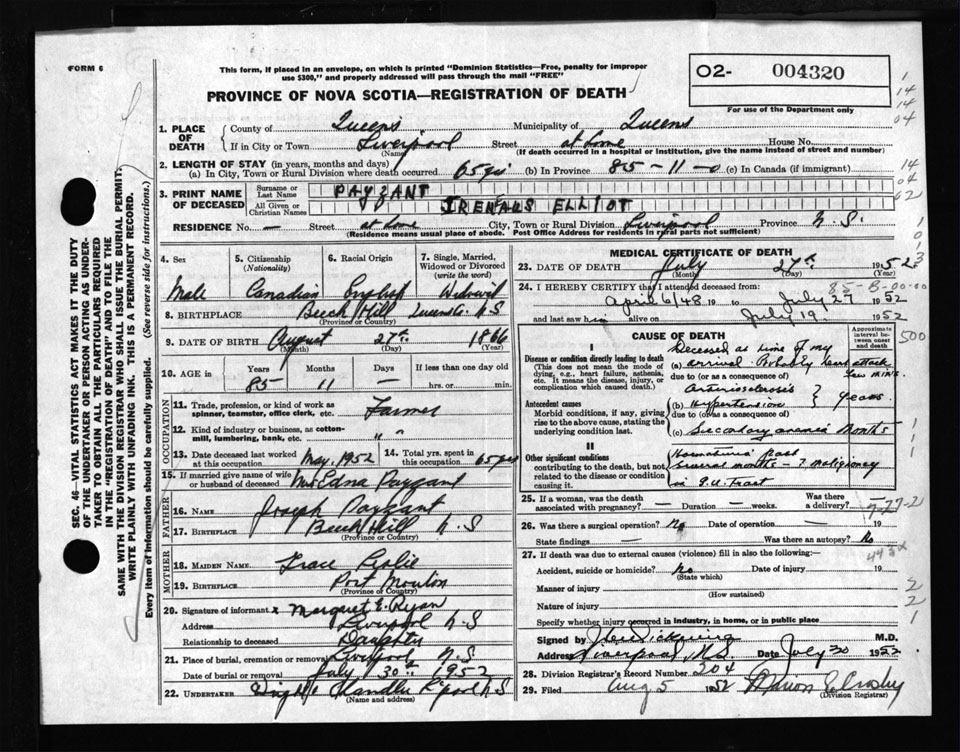 FORM 6
This form, if placed in an envelope, on which is printed "Dominion Statistics—Free, penalty for improper
use $300," and properly addressed will pass through the mail "FREE"
PROVINCE OF NOVA SCOTIA—REGISTRATION OF DEATH
O2- 004320
For use of the Department only
1. PLACE OF DEATH
County of Queens Municipality of Queens
If in City or Town Liverpool Street at home House No.
(Name) (If death occurred in a hospital or institution, give the name instead of street and number)
2. LENGTH OF STAY (in years, months and days)
(a) In City, Town or Rural Division where death occurred 65 yrs (b) In Province 85-11-0 (c) In Canada (if immigrant)
3. PRINT NAME OF DECEASED
Surname or Last Name PAYZANT
All Given or Christian Names IRENAUS ELLIOT
RESIDENCE No. — Street at home City, Town or Rural Division Liverpool Province N.S.
(Residence means usual place of abode. Post Office Address for residents of rural parts not sufficient)
4. Sex 5. Citizenship (Nationality) 6. Racial Origin 7. Single, Married, Widowed or Divorced (write the word)
Male Canadian English
8. BIRTHPLACE Beech Hill Queens Co. N S
(Province or Country)
9. DATE OF BIRTH August 27th 1866
(Month) (Day) (Year)
10. AGE Years Months Days If less than one day old
85 11 — hrs. or min.
OCCUPATION
11. Trade, profession, or kind of work as spinner, teamster, office clerk, etc. Farmer
12. Kind of industry or business, as cotton-mill, lumbering, bank, etc. " "
13. Date deceased last worked at this occupation May, 1952 14. Total yrs. spent in this occupation 65 yrs
15. If married give name of wife or husband of deceased Mrs Edna Payzant
FATHER
16. Name Joseph Payzant
17. Birthplace Beech Hill N S
(Province or Country)
MOTHER
18. MAIDEN NAME Grace Leslie
19. BIRTHPLACE Port Mouton
(Province or Country)
20. Signature of informant x Margaret E. Ryan
Address Liverpool N.S
Relationship to deceased Daughter
21. Place of burial, cremation or removal Liverpool N.S
Date of burial or removal July 30th 1952
22. UNDERTAKER Chandler L'pool N S
(Name and address)
MEDICAL CERTIFICATE OF DEATH
23. DATE OF DEATH July 27th 1952
(Month) (Day) (Year)
85-B-00-00
24. I HEREBY CERTIFY that I attended deceased from:
April 6/48 19 to July 27 1952
and last saw him alive on July 19 1952
CAUSE OF DEATH
Approximate interval between onset and death
I
Disease or condition directly leading to death
(This does not mean the mode of dying, e.g., heart failure, asthenia, etc. It means the disease, injury, or complication which caused death.)
Deceased at time of my
(a) arrival. Probably heart attack few mins
due to (or as a consequence of)
Arteriosclerosis
Antecedent causes
Morbid conditions, if any, giving rise to the above cause, stating the underlying condition last.
(b) Hypertension years
due to (or as a consequence of)
(c) Secondary anemia Months
II
Other significant conditions
contributing to the death, but not related to the disease or condition causing it.
Hematuria Past
several months - ? malignancy
in G.U. Tract
25. If a woman, was the death associated with pregnancy? — Duration — weeks. Was there a delivery? —
26. Was there a surgical operation? No Date of operation — 19
State findings — Was there an autopsy? No
27. If death was due to external causes (violence) fill in also the following:—
Accident, suicide or homicide? No Date of injury 19
(State which)
Manner of injury
(How sustained)
Nature of injury
Specify whether injury occurred in industry, in home, or in public place
Signed by M.D.
Address Liverpool, N.S. Date July 30 1952
28. Division Registrar's Record Number 204
29. Filed Aug 5 1952
(Division Registrar)
SEC. 46—VITAL STATISTICS ACT MAKES IT THE DUTY
OF THE UNDERTAKER OR PERSON ACTING AS UNDER-
TAKER TO OBTAIN ALL THE PARTICULARS REQUIRED
IN THE "REGISTRATION OF DEATH" AND TO FILE THE
SAME WITH THE DIVISION REGISTRAR WHO SHALL ISSUE THE BURIAL PERMIT.
WRITE PLAINLY WITH UNFADING INK. THIS IS A PERMANENT RECORD.
Every item of information should be carefully supplied. (See reverse side for instructions.)